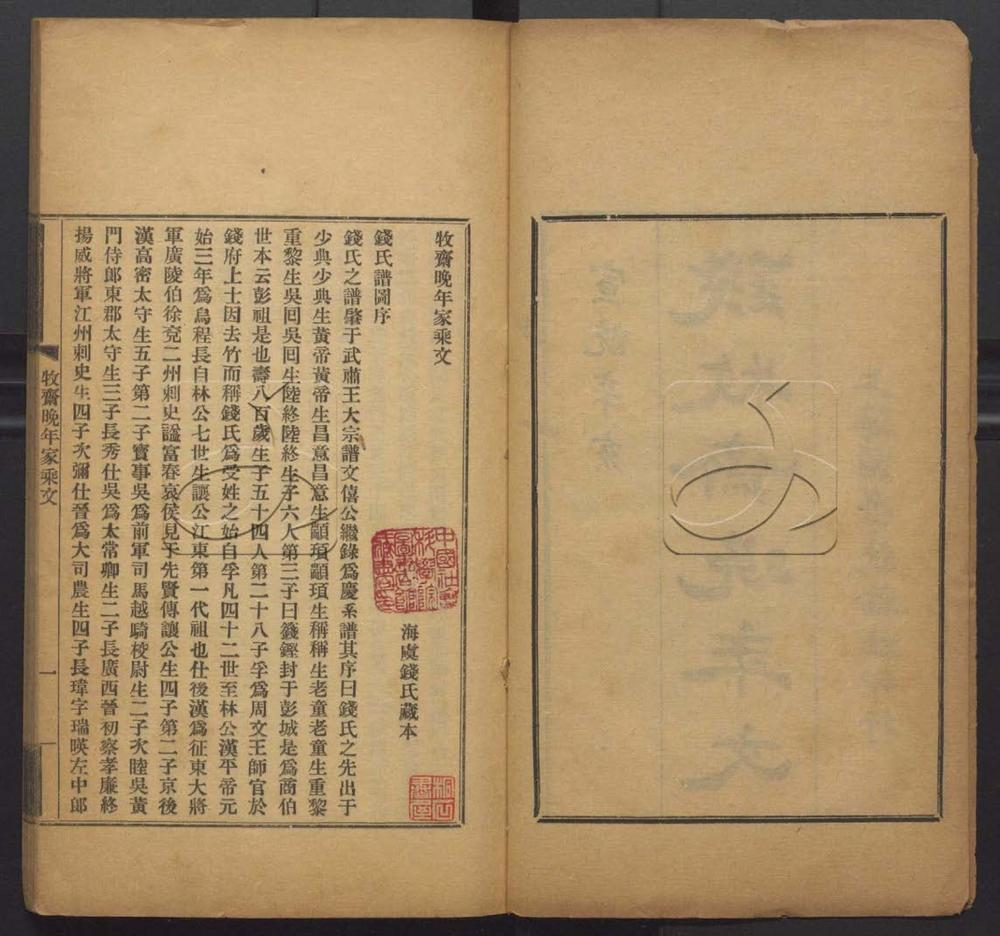 牧齋晚年家乘文
海虞錢氏藏本
錢氏譜圖序
錢氏之譜肇于武肅王大宗譜文僖公繼錄爲慶系譜其序曰錢氏之先出于
少典少典生黃帝黃帝生昌意昌意生顓頊顓頊生稱稱生老童老童生重黎
重黎生吳回吳回生陸終陸終生子六人第三子曰籛鏗封于彭城是爲商伯
世本云彭祖是也壽八百歲生子五十四人第二十八子孚爲周文王師官於
錢府上士因去竹而稱錢氏爲受姓之始自孚凡四十二世至林公漢平帝元
始三年爲烏程長自林公七世生讓公江東第一代祖也仕後漢爲征東大將
軍廣陵伯徐兗二州刺史諡富春哀侯見于先賢傳讓公生四子第二子京後
漢高密太守生五子第二子寶事吳爲前軍司馬越騎校尉生二子次睦吳黃
門侍郎東郡太守生三子長秀仕吳爲太常卿生二子長廣西晉初察孝廉終
揚威將軍江州刺史生四子次彌仕晉爲大司農生四子長瑋字瑞暎左中郎
牧齋晚年家乘文
一